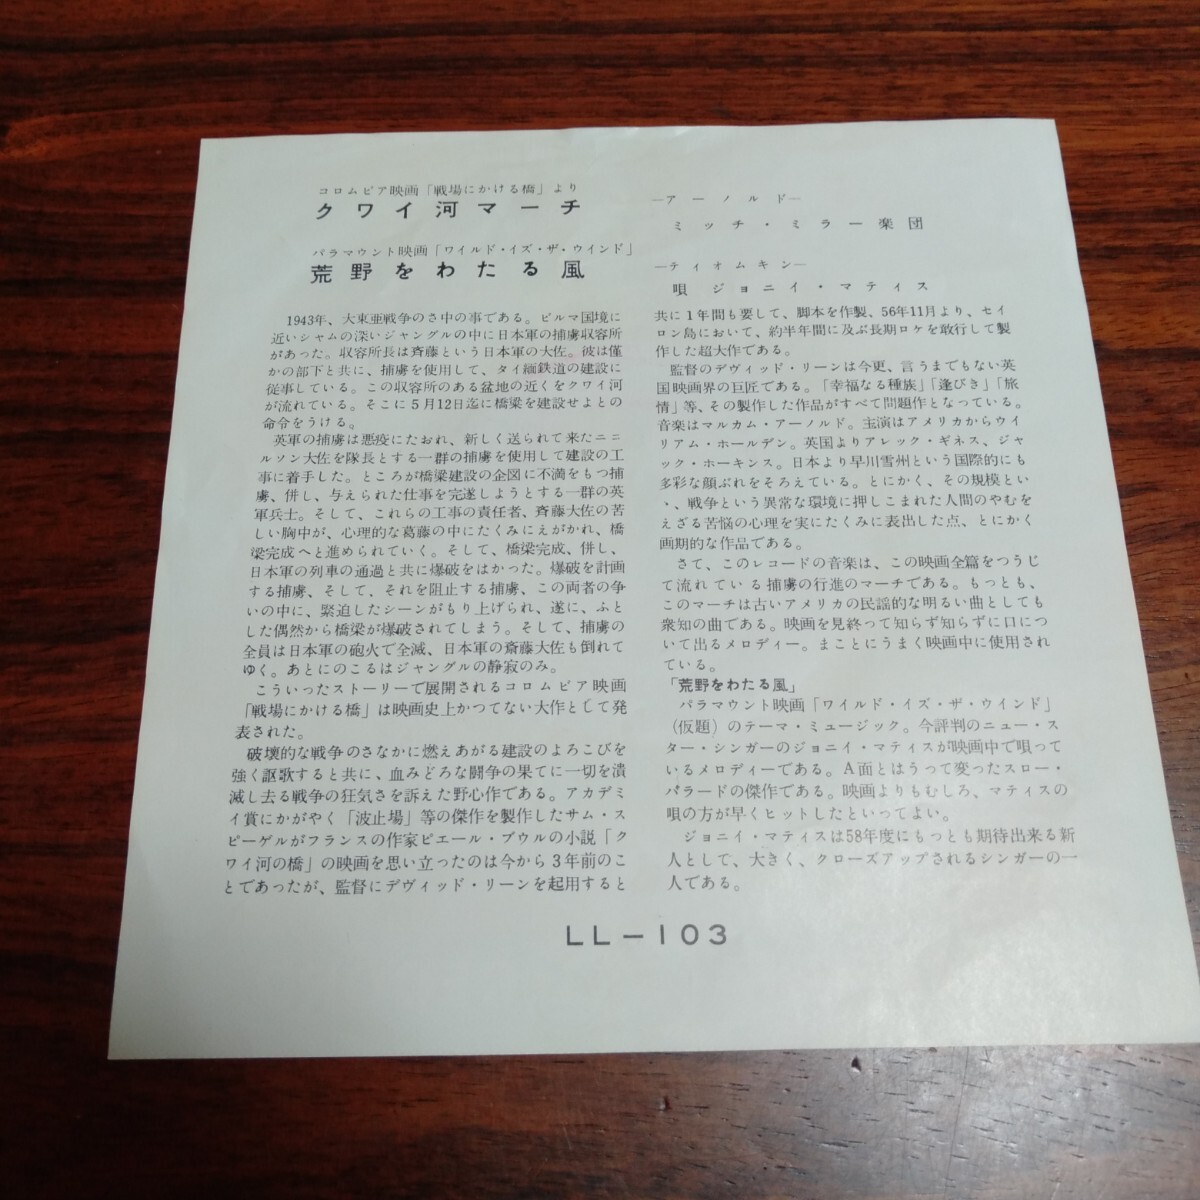 コロムビア映画「戦場にかける橋」より
クワイ河マーチ
―アーノルド―
ミッチ・ミラー楽団
パラマウント映画「ワイルド・イズ・ザ・ウインド」
荒野をわたる風
―ティオムキン―
唄 ジョニイ・マティス
1943年、大東亜戦争のさ中の事である。ビルマ国境に
近いシャムの深いジャングルの中に日本軍の捕虜収容所
があった。収容所長は斉藤という日本軍の大佐。彼は僅
かの部下と共に、捕虜を使用して、タイ緬鉄道の建設に
従事している。この収容所のある盆地の近くをクワイ河
が流れている。そこに5月12日迄に橋梁を建設せよとの
命令をうける。
英軍の捕虜は悪疫にたおれ、新しく送られて来たニニ
ルソン大佐を隊長とする一群の捕虜を使用して建設の工
事に着手した。ところが橋梁建設の企図に不満をもつ捕
虜、併し、与えられた仕事を完遂しようとする一群の英
軍兵士。そして、これらの工事の責任者、斉藤大佐の苦
しい胸中が、心理的な葛藤の中にたくみにえがかれ、橋
梁完成へと進められていく。そして、橋梁完成、併し、
日本軍の列車の通過と共に爆破をはかった。爆破を計画
する捕虜、そして、それを阻止する捕虜、この両者の争
いの中に、緊迫したシーンがもり上げられ、遂に、ふと
した偶然から橋梁が爆破されてしまう。そして、捕虜の
全員は日本軍の砲火で全滅、日本軍の斎藤大佐も倒れて
ゆく。あとにのこるはジャングルの静寂のみ。
こういったストーリーで展開されるコロムビア映画
「戦場にかける橋」は映画史上かつてない大作として発
表された。
破壊的な戦争のさなかに燃えあがる建設のよろこびを
強く謳歌すると共に、血みどろな闘争の果てに一切を潰
滅し去る戦争の狂気さを訴えた野心作である。アカデミ
イ賞にかがやく「波止場」等の傑作を製作したサム・ス
ピーゲルがフランスの作家ピエール・ブウルの小説「ク
ワイ河の橋」の映画を思い立ったのは今から3年前のこ
とであったが、監督にデヴィッド・リーンを起用すると
共に1年間も要して、脚本を作製、56年11月より、セイ
ロン島において、約半年間に及ぶ長期ロケを敢行して製
作した超大作である。
監督のデヴィッド・リーンは今更、言うまでもない英
国映画界の巨匠である。「幸福なる種族」「逢びき」「旅
情」等、その製作した作品がすべて問題作となっている。
音楽はマルカム・アーノルド。主演はアメリカからウイ
リアム・ホールデン。英国よりアレック・ギネス、ジャ
ック・ホーキンス。日本より早川雪州という国際的にも
多彩な顔ぶれをそろえている。とにかく、その規模とい
い、戦争という異常な環境に押しこまれた人間のやむを
えざる苦悩の心理を実にたくみに表出した点、とにかく
画期的な作品である。
さて、このレコードの音楽は、この映画全篇をつうじ
て流れている捕虜の行進のマーチである。もっとも、
このマーチは古いアメリカの民謡的な明るい曲としても
衆知の曲である。映画を見終って知らず知らずに口につ
いて出るメロディー。まことにうまく映画中に使用され
ている。
「荒野をわたる風」
パラマウント映画「ワイルド・イズ・ザ・ウインド」
（仮題）のテーマ・ミュージック。今評判のニュー・ス
ター・シンガーのジョニイ・マティスが映画中で唄って
いるメロディーである。A面とはうって変ったスロー・
バラードの傑作である。映画よりもむしろ、マティスの
唄の方が早くヒットしたといってよい。
ジョニイ・マティスは58年度にもっとも期待出来る新
人として、大きく、クローズアップされるシンガーの一
人である。
LL－103